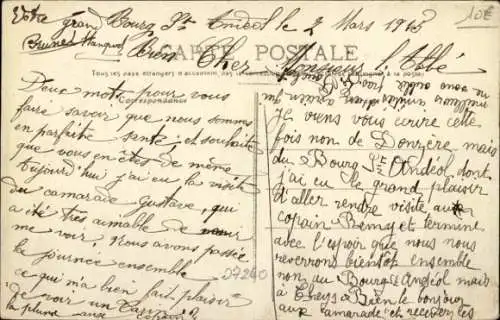 Votre grand
Bourg St Andéol le 2 Mars 1915
10€
Bien Cher Monsieur l'Abbé
CARTE POSTALE
Tous les pays étrangers n'acceptent pas la
Correspondance
Deux mots pour vous
faire savoir que nous sommes
en parfaite santé; et souhaite
que vous en êtes de même
Aujourd'hui j'ai eu la visite
du camarade Gustave, qui
a été très aimable de venir
me voir; Nous avons passé
la journée ensemble
ce qui m'a bien fait plaisir
de voir un
la plume aux copains
27240
Je viens vous écrire cette
fois non de Donzère mais
du Bourg St Andéol, dont
j'ai eu le grand plaisir
d'aller rendre visite au
copain Remy et termine
avec l'espoir que nous nous
reverrons bientôt ensemble
non au Bourg St Andéol mais
à Bien le bonjour
aux camarade et recevez les